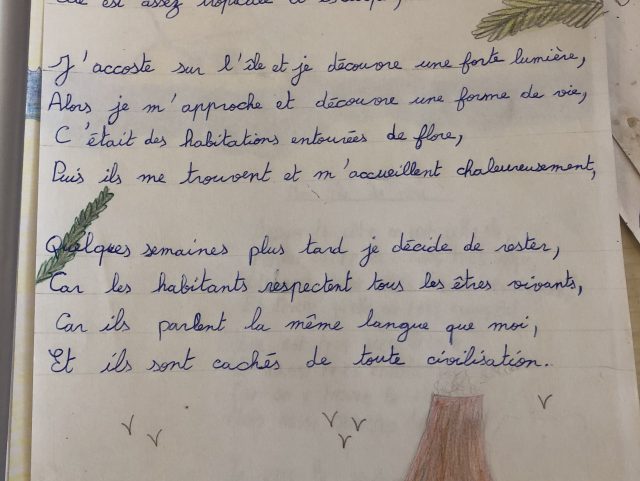 est assez tropicale
J'accoste sur l'île et je découvre une forte lumière,
Alors je m'approche et découvre une forme de vie,
C'était des habitations entourées de flore,
Puis ils me trouvent et m'accueillent chaleureusement,
Quelques semaines plus tard je décide de rester,
Car les habitants respectent tous les êtres vivants,
Car ils parlent la même langue que moi,
Et ils sont cachés de toute civilisation.